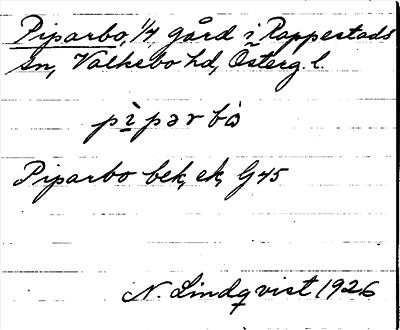 Piparbo, 1/4 gård i Rappestads
sn, Valkebo hd, Österg. l.
pìpər bò
Piparbo bek, ek, G 45
N. Lindqvist 1926